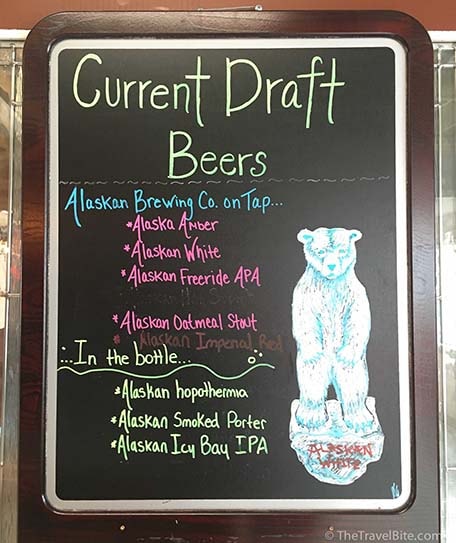 Current Draft
Beers
Alaskan Brewing Co. on Tap...
*Alaska Amber
*Alaskan White
*Alaskan Freeride APA
*Alaskan Oatmeal Stout
* Alaskan Imperial Red
...In the bottle...
*Alaskan hopothermia
*Alaskan Smoked Porter
*Alaskan Icy Bay IPA
ALASKEN
WHITE
© TheTravelBite.com